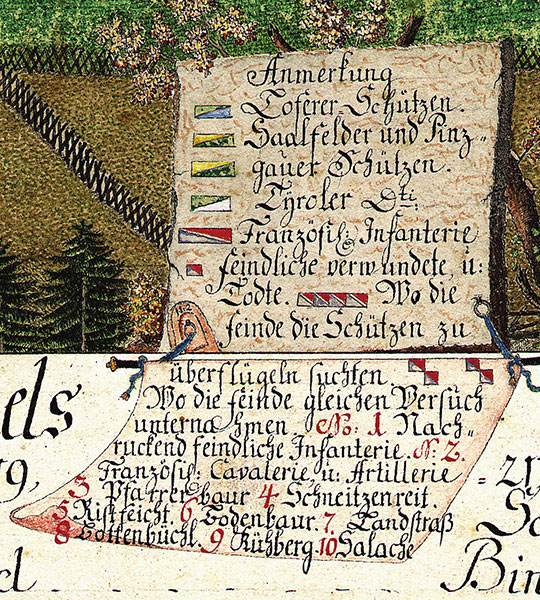 Anmerkung
Toferer-Schützen.
Saalfelder und Pinz-
gauer Schützen.
Tyroler Dti:
Französis: Infanterie
feindliche verwundete, u:
Todte. Wo die
feinde die Schützen zu
überflügeln suchten.
Wo die feinde gleichen Versuch
unternahmen. No: 1 Nach-
ruckend feindliche Infanterie. N: 2.
Französis: Cavalerie u: Artillerie
3 Pfarrerbaur 4 Schneitzenreit.
5 Ristfeicht. 6 Todenbaur. 7. Landstraß
8 Tottenbüchl. 9 Kühberg. 10 Salache
els
79,
Bin